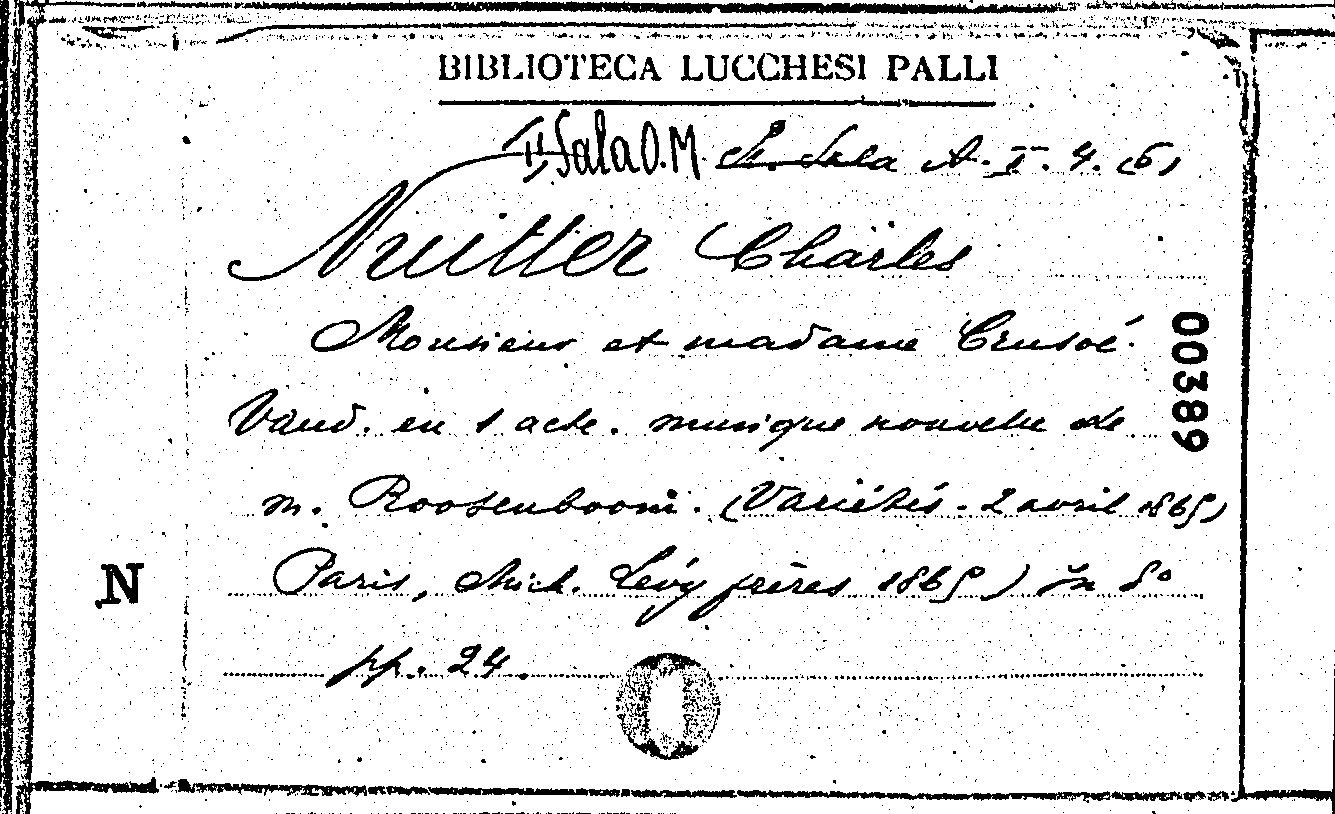 BIBLIOTECA LUCCHESI PALLI
II Sala O.M. Sala A. I. 4. (6)
Nuitter Charles
Monsieur et madame Crusoé.
Vaud. en 1 acte. musique nouvelle de
m. Roosenboom. (Variétés. 2 avril 1865)
Paris, Mich. Lévy frères 1865) In 8°
pp. 24.
N
00389